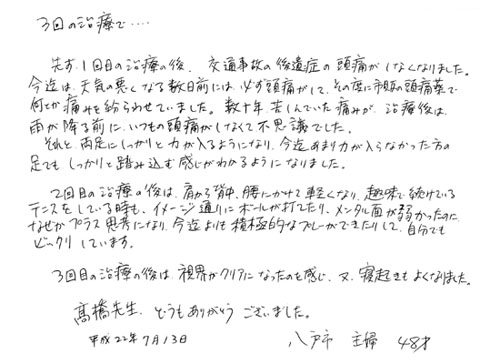 3回の治療で‥‥
先ず、1回目の治療の後、交通事故の後遺症の頭痛がしなくなりました。
今迄は、天気の悪くなる数日前には必ず頭痛がして、その度に市販の頭痛薬で
何とか痛みを紛らわせていました。数十年苦しんでいた痛みが、治療後は、
雨が降る前に、いつもの頭痛がしなくて不思議でした。
それと、両足にしっかりと力が入るようになり、今迄あまり力が入らなかった方の
足でもしっかりと踏み込む感じがわかるようになりました。
2回目の治療の後は、肩から背中、腰にかけて軽くなり、趣味で続けている
テニスをしている時も、イメージ通りにボールが打てたり、メンタル面が弱かったのに
なぜかプラス思考になり、今迄よりも積極的なプレーができたりして、自分でも
ビックリしています。
3回目の治療の後は、視界がクリアになったのを感じ、又、寝起きもよくなりました。
髙橋先生、どうもありがとうございました。
平成22年7月13日 八戸市 主婦 48才